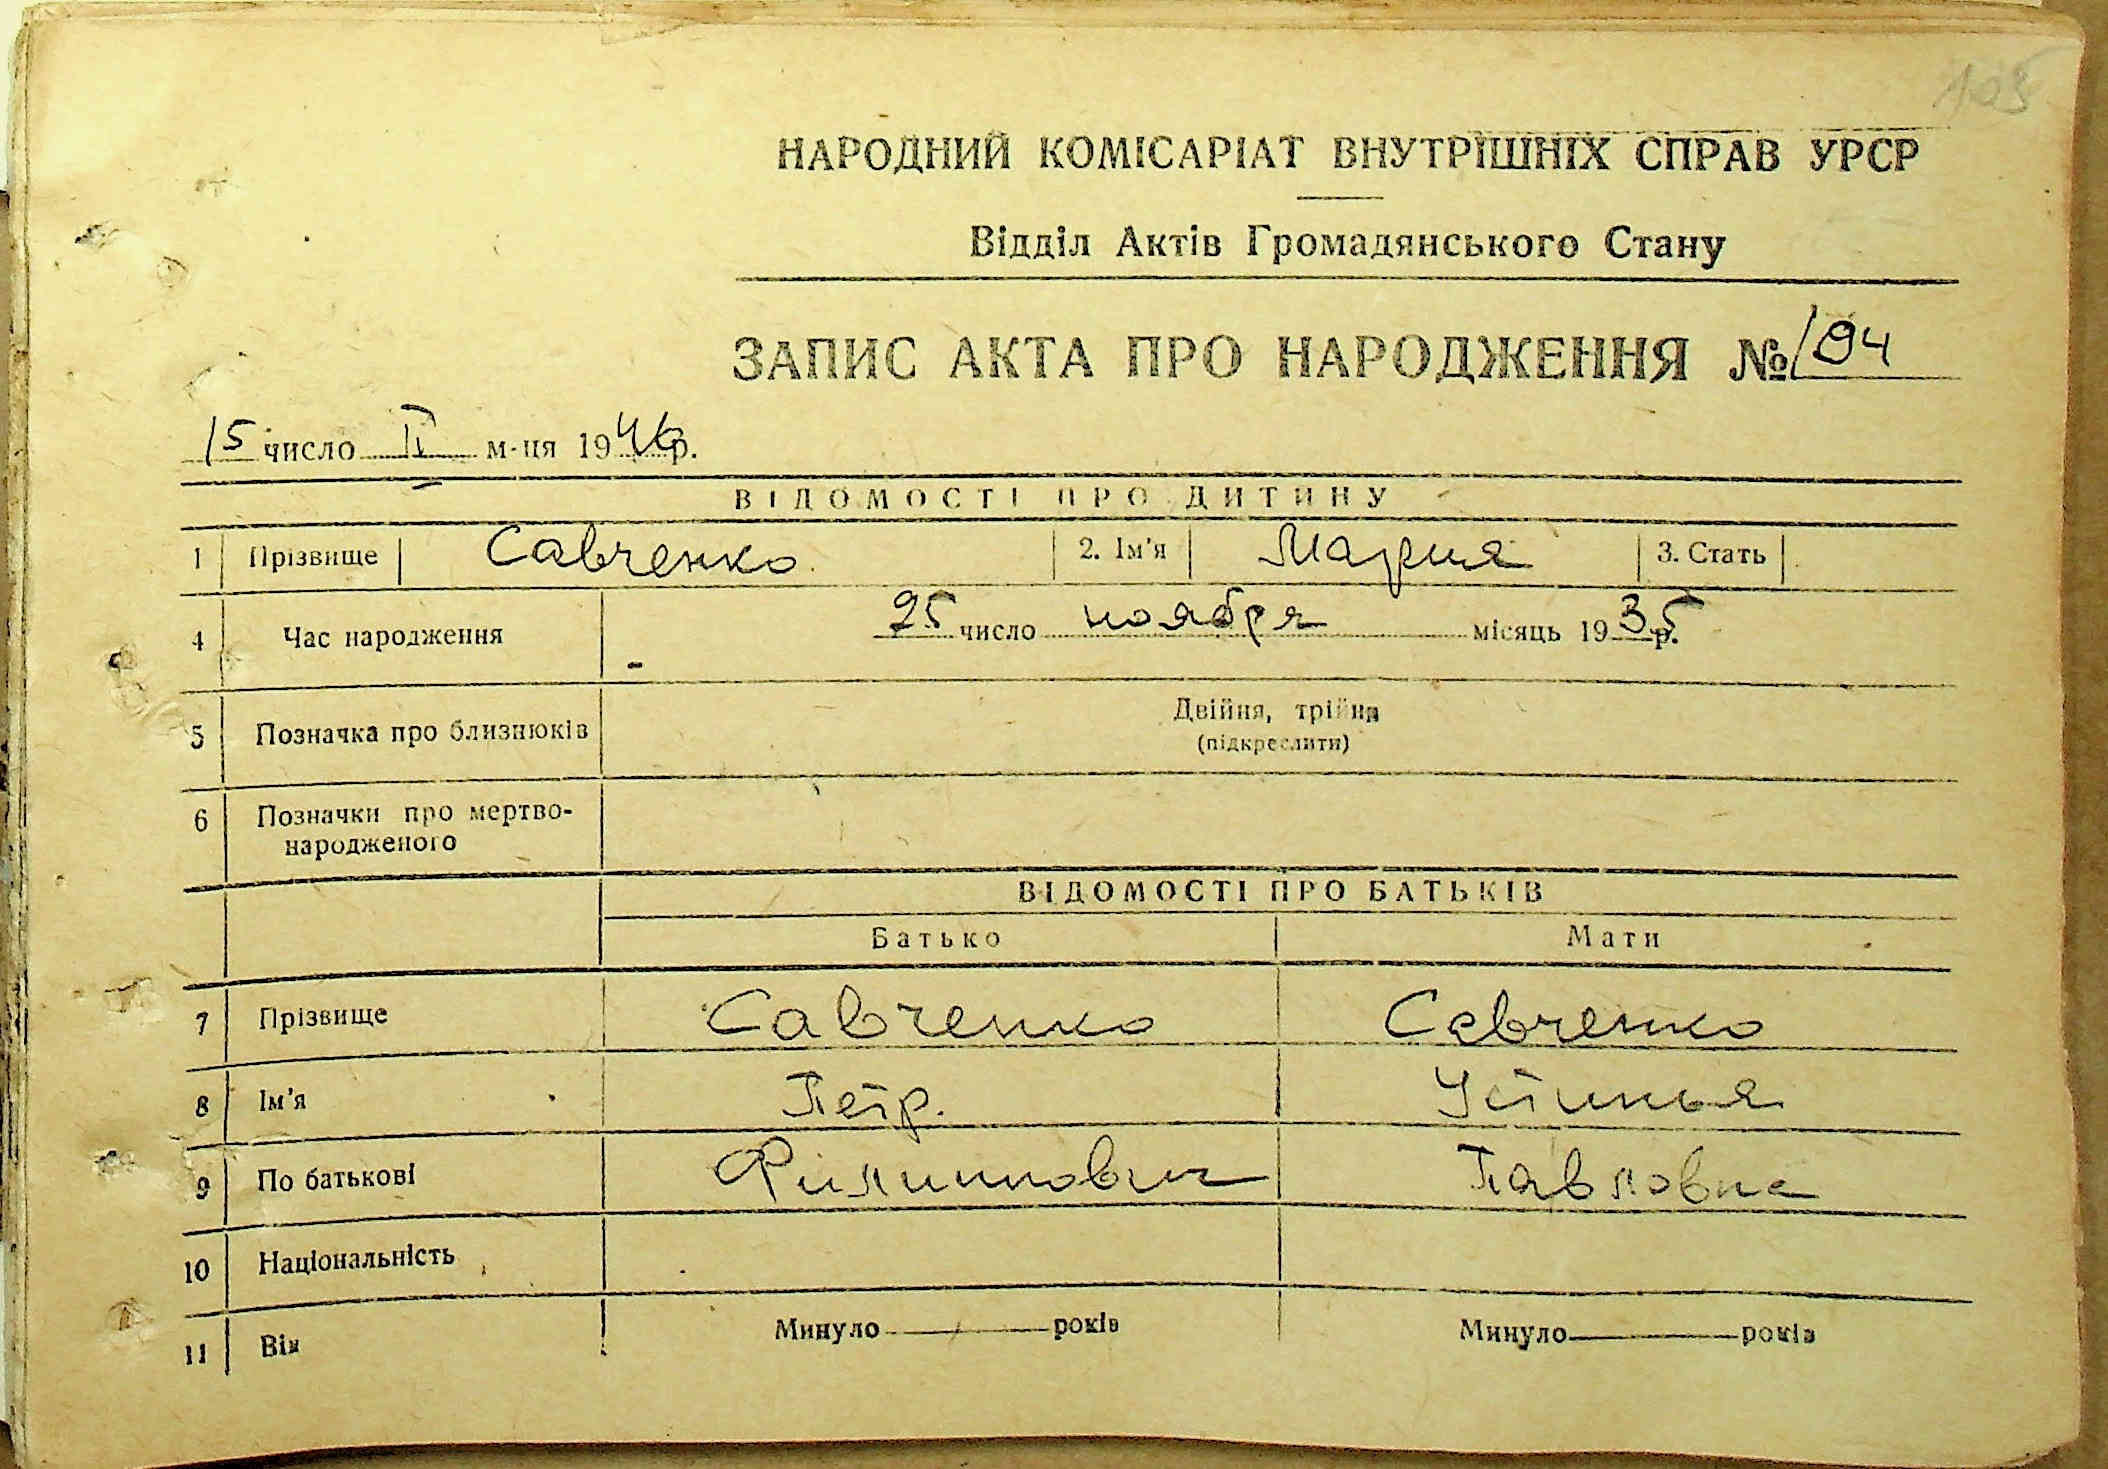 105
НАРОДНИЙ КОМІСАРІАТ ВНУТРІШНІХ СПРАВ УРСР
Відділ Актів Громадянського Стану
ЗАПИС АКТА ПРО НАРОДЖЕННЯ № 194
15 число II м-ця 1946 р.
ВІДОМОСТІ ПРО ДИТИНУ
1 Прізвище Савченко 2. Ім'я Мария 3. Стать
4 Час народження 25 число ноября місяць 1935 р.
5 Позначка про близнюків Двійня, трійня
(підкреслити)
6 Позначки про мертво-
народженого
ВІДОМОСТІ ПРО БАТЬКІВ
Батько Мати
7 Прізвище Савченко Савченко
8 Ім'я Петр. Устинья
9 По батькові Филиппович Павловна
10 Національність
11 Вік Минуло років Минуло років